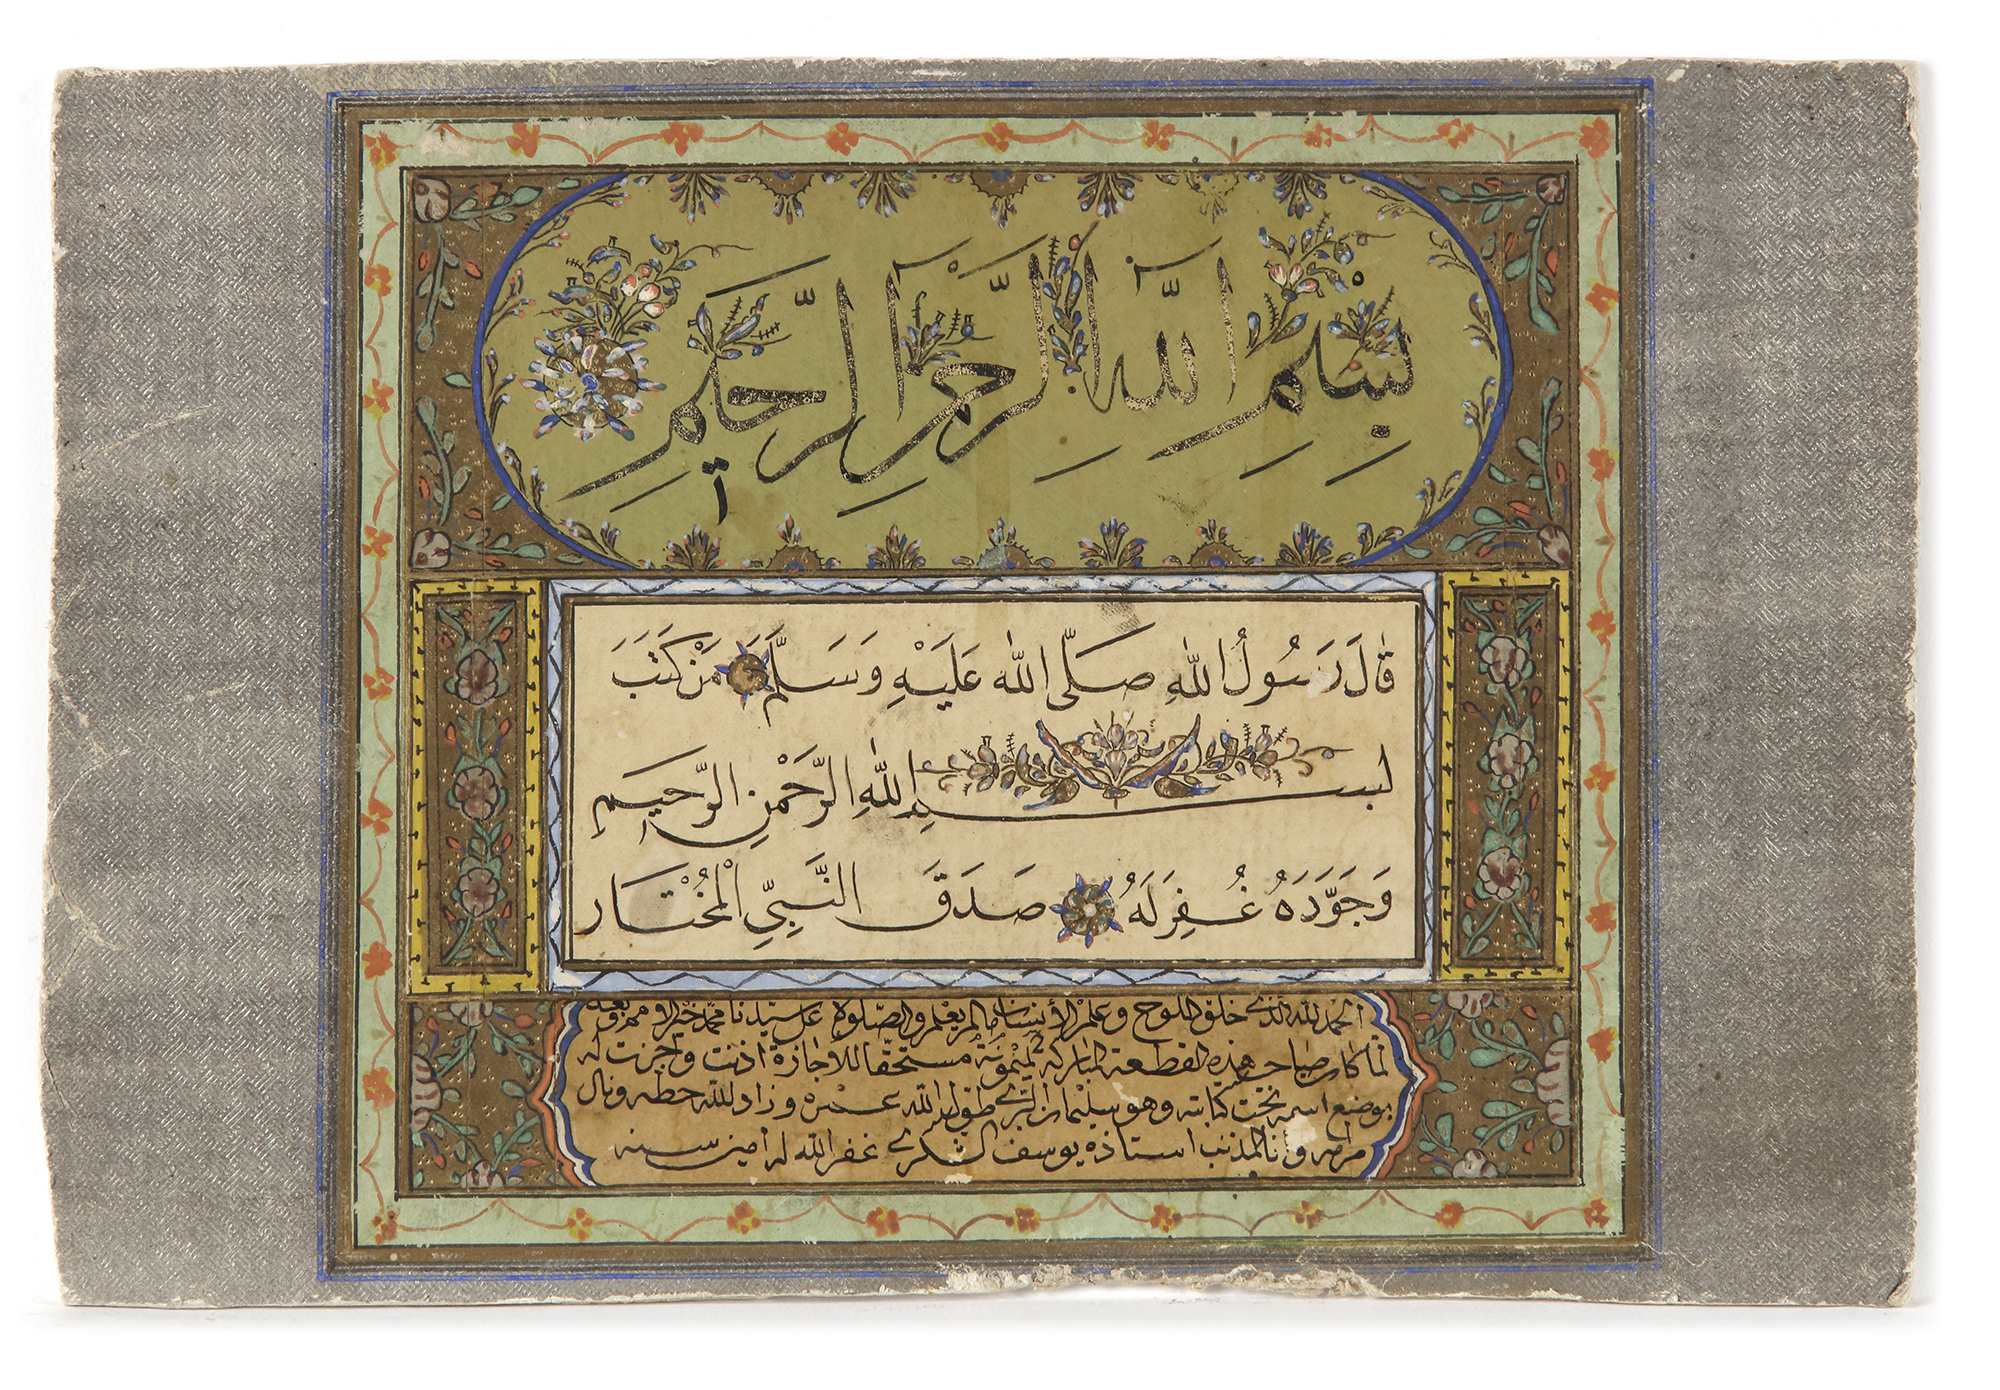 بِسْمِ اللّٰهِ الرَّحْمٰنِ الرَّحِيمِ
قَالَ رَسُولُ اللّٰهِ صَلَّى اللّٰه عَلَيْهِ وَسَلَّمَ مَنْ كَتَبَ
لبسمِ اللّٰهِ الرَّحْمٰنِ الرَّحِيمِ
وَجَوَّدَهُ غُفِرَلَهُ صَدَقَ النَّبِيِّ الْمُخْتَار
الحمد لله الذى خلق اللوح وعلم الأنسان مالم يعلم والصلوة على سيدنا محمد خير الامم وبعد
لما كان صاحب هذه القطعة المباركة الميمونة مستحقا للاجازة اذنت واجزت له
بوضع اسمه تحت كتابته وهو سليمان طول الله عمره وزاد لله خطه ونال
مرامه وأنا المذنب استاذه يوسف الشكرى غفر الله له امين سنه